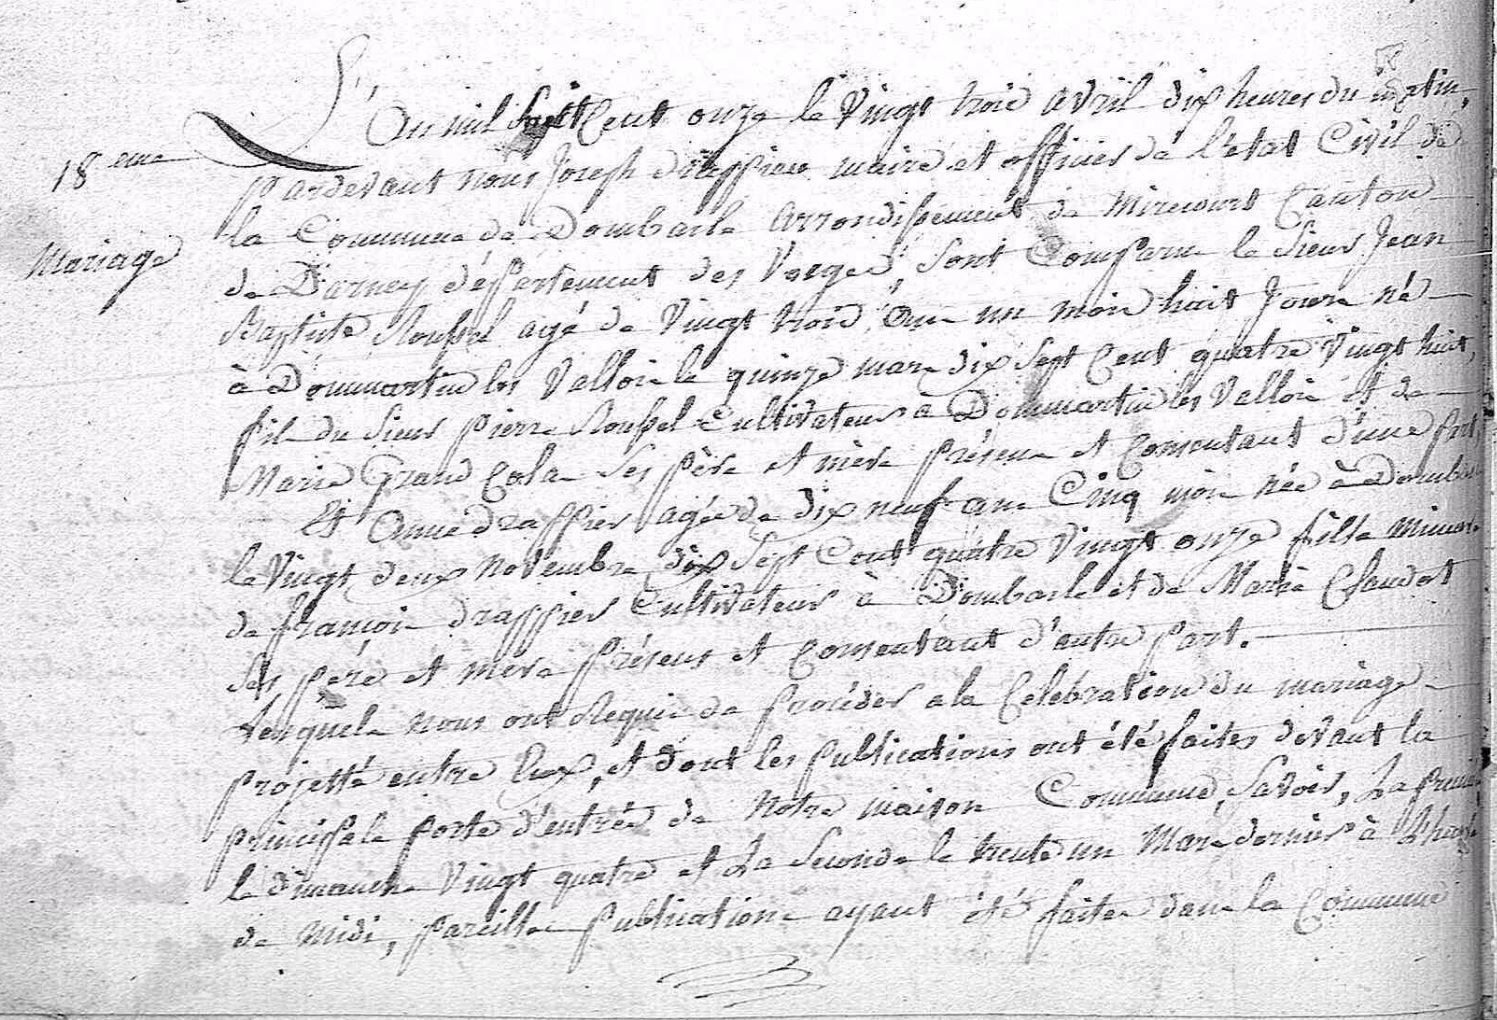 18eme
Mariage
L'An mil huit Cent onze le Vingt trois avril dix heures du matin,
pardevant nous Joseph drappier maire et officier de l'état Civil de
la Commune de Dombasle arrondissement de Mirecourt Canton
de Darney département des Vosges, sont Comparus le Sieur Jean
Baptiste Roussel agé de Vingt trois ans un mois huit Jours né
à Dommartin les Vallois le quinze mars dix sept Cent quatre Vingt huit,
fils du Sieur pierre Roussel Cultivateur a Dommartin les Vallois et de
Marie Grand Colas Ses père et mère présens et Consentant d'une part
Et Anne drappier agée de dix neuf ans Cinq mois née à Dombasle
le Vingt deux Novembre dix Sept Cent quatre Vingt onze fille mineure
de françois drappier Cultivateur à Dombasle et de Marie Claudot
Ses père et mère présens et Consentant d'autre part.
Lesquels nous ont Requis de procéder a la Célébration du mariage
projetté entre Eux, et dont les publications ont été faites devant la
principale porte d'entrée de Notre maison Commune, Savoir, La premiere
le dimanche Vingt quatre et La Seconde le trente un Mars dernier à l'heure
de midi, pareilles publications ayant été faites dans la Commune